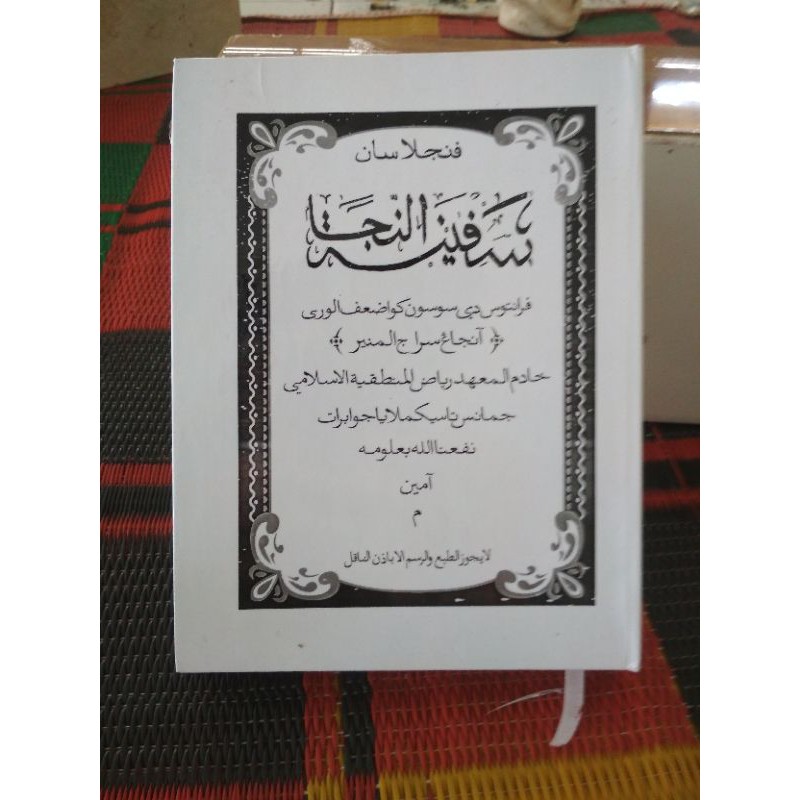 فنجلاسان
سفينة النجا
فرانتوس دي سوسون كو اضعف الورى
﴿ آنجاغ سراج المنير ﴾
خادم المعهد رياض المنطقية الاسلامي
جمانس تاسيكملايا جوا برات
نفعنا الله بعلومه
آمين
م
لا يجوز الطبع والرسم الا باذن الناقل